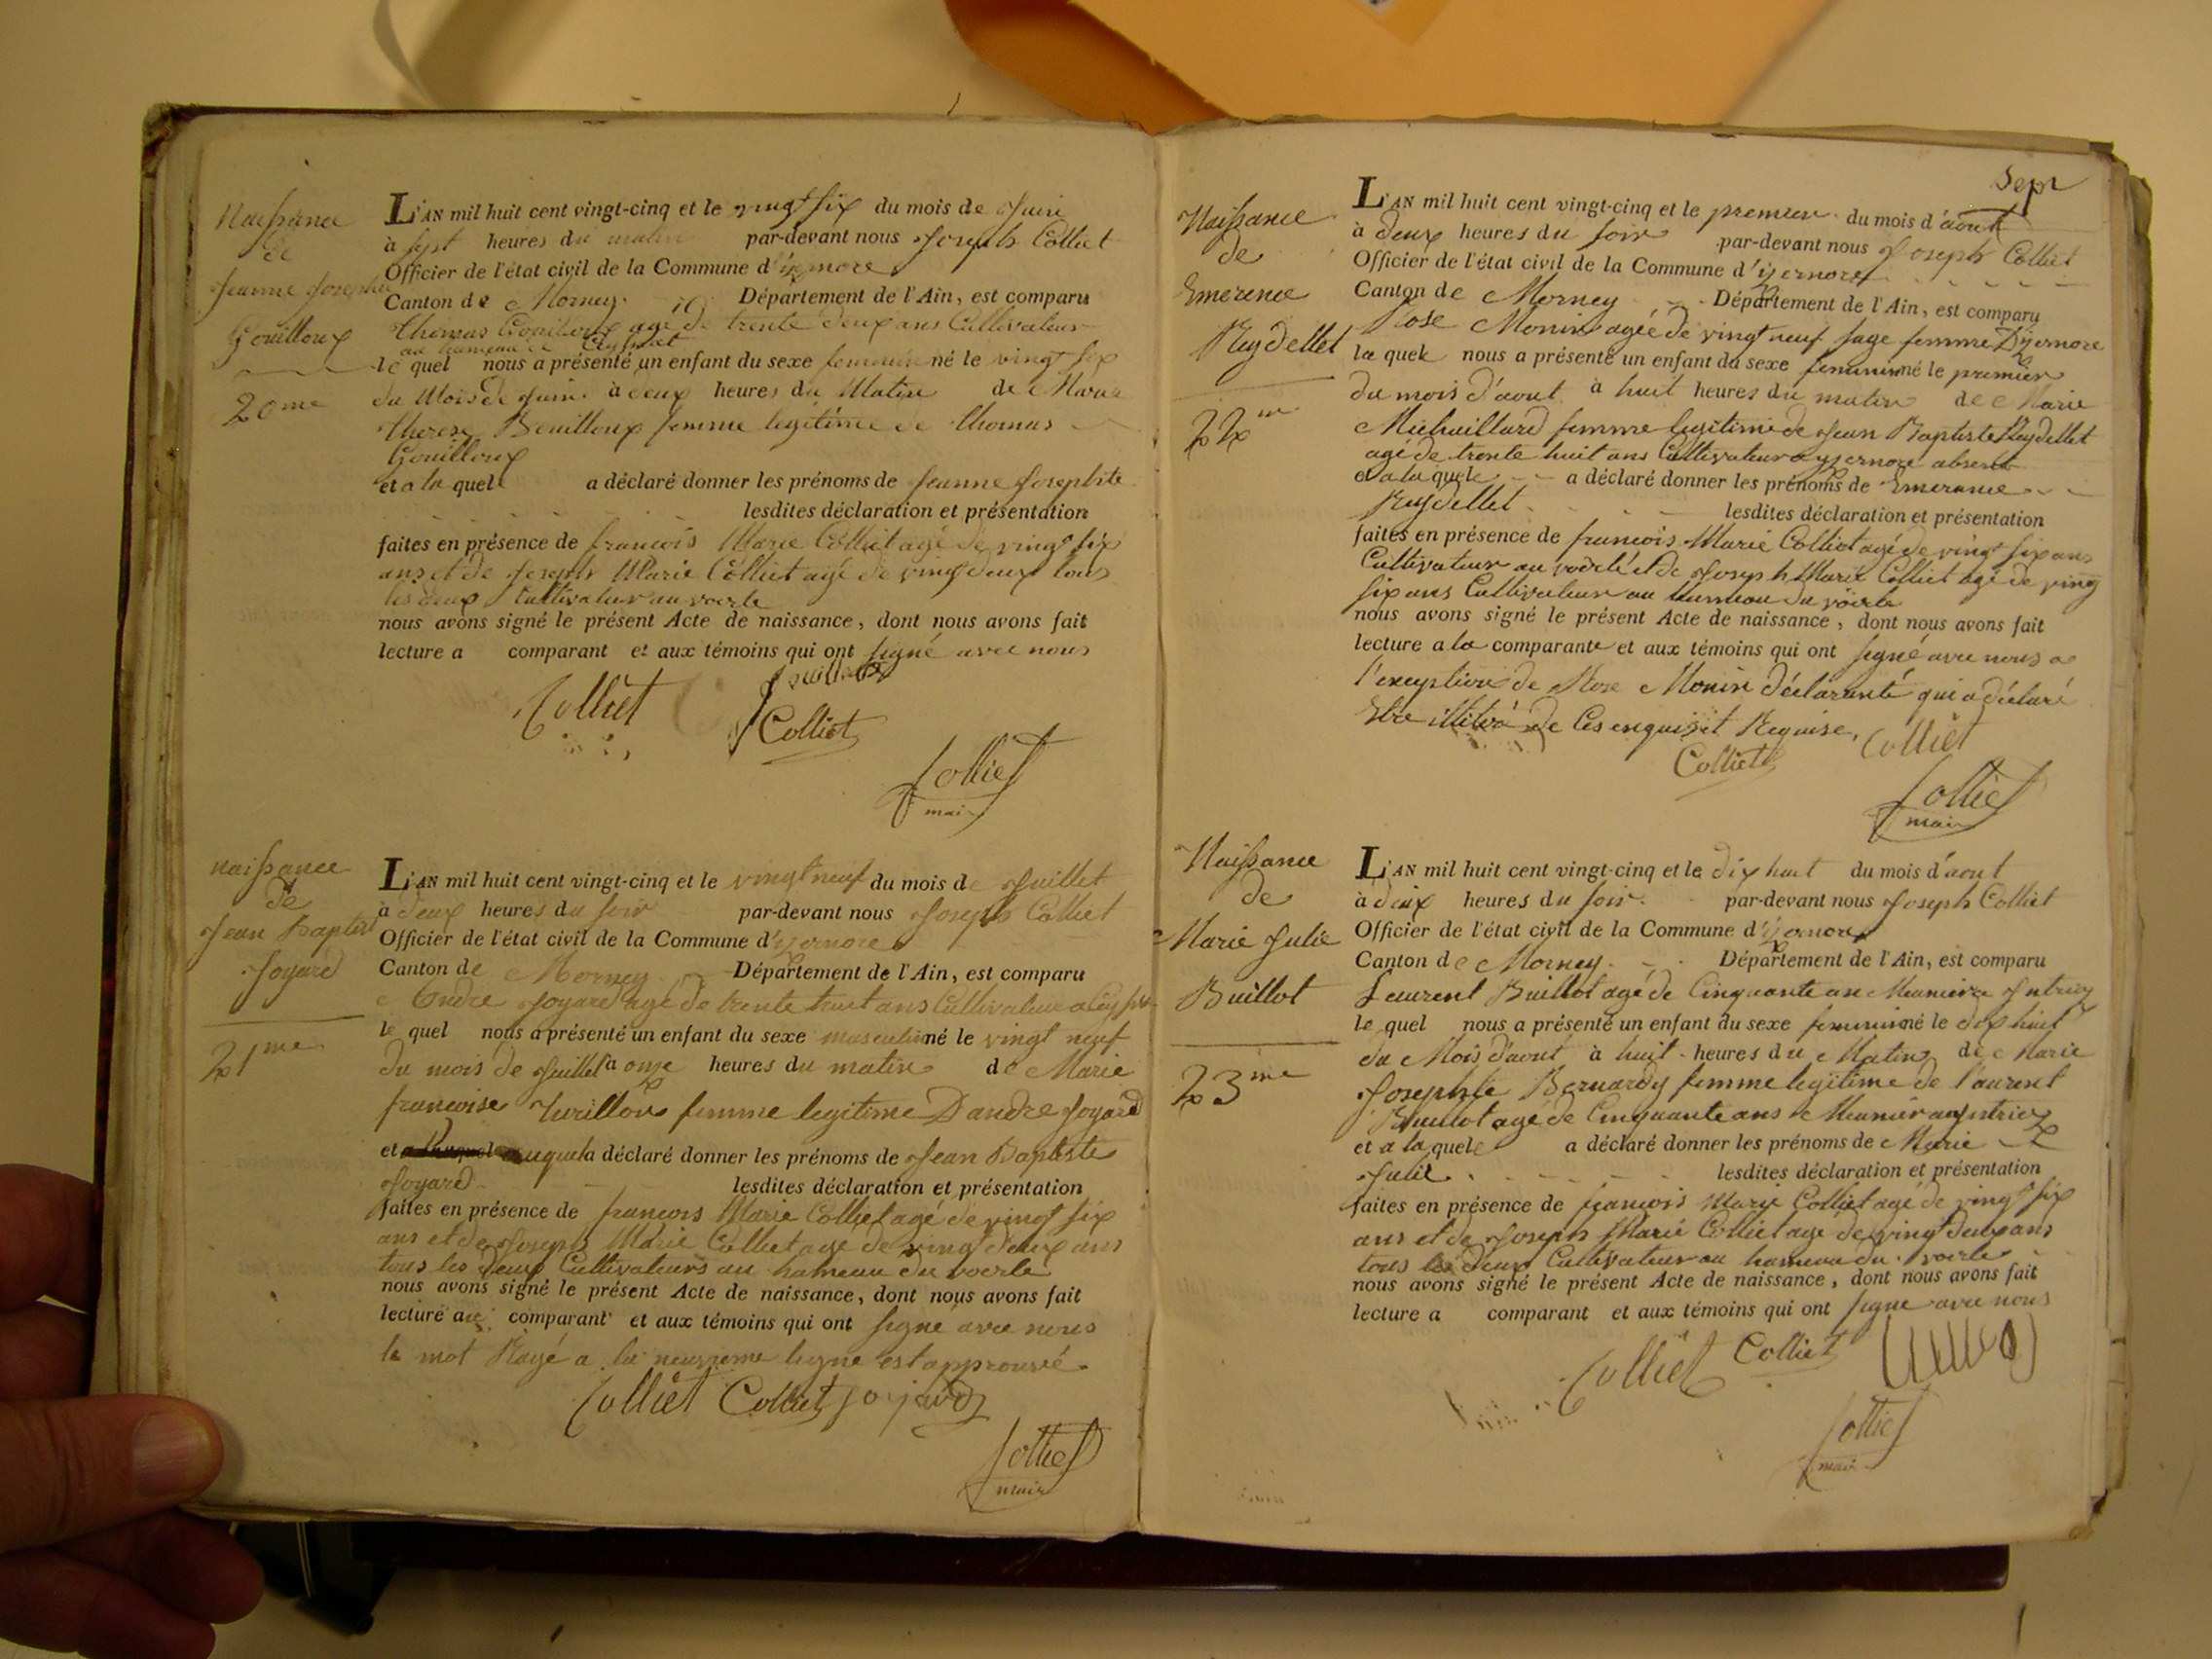 Naissance
de
Jeanne Josephte
Gouilloux
20me
L'AN mil huit cent vingt-cinq et le vingt six du mois de Juin
à sept heures du matin par-devant nous Joseph Colliet
Officier de l'état civil de la Commune d'izernore
Canton de Mornay. Département de l'Ain, est comparu
Thomas Gouilloux agé de trente deux ans Cultivateur
au hameau de Ceyssiat
le quel nous a présenté un enfant du sexe feminin né le vingt six
du Mois de Juin à deux heures du Matin de Marie
Therese Bouilloux femme legitime de Thomas
Gouilloux
et a la quele a déclaré donner les prénoms de Jeanne Josephte
lesdites déclaration et présentation
faites en présence de francois Marie Colliet agé de vingt six
ans et de Joseph Marie Colliet agé de vingt deux tous
les deux Cultivateur au voerle
nous avons signé le présent Acte de naissance, dont nous avons fait
lecture a comparant et aux témoins qui ont signé avec nous
Gouilloux
Colliet
Colliet
Colliet
maire
naissance
de
Jean Baptist
Joyard
21me
L'AN mil huit cent vingt-cinq et le vingt neuf du mois de Juillet
à deux heures du soir par-devant nous Joseph Colliet
Officier de l'état civil de la Commune d'izernore
Canton de Mornay Département de l'Ain, est comparu
Andre Joyard agé de trente huit ans Cultivateur a
le quel nous a présenté un enfant du sexe masculin né le vingt neuf
du mois de Juillet à onze heures du matin de Marie
francoise femme legitime D'andre Joyard
et auquel a déclaré donner les prénoms de Jean Baptiste
Joyard lesdites déclaration et présentation
faites en présence de francois Marie Colliet agé de vingt six
ans et de Joseph Marie Colliet agé de vingt deux ans
tous les deux Cultivateurs au hameau du voerle
nous avons signé le présent Acte de naissance, dont nous avons fait
lecture au comparant et aux témoins qui ont signé avec nous
le mot Rayé a la neuvieme ligne est approuvé.
Colliet Colliet Joyard
Colliet
maire
Sept
Naissance
de
Emerence
Reydellet
22me
L'AN mil huit cent vingt-cinq et le premier du mois d'aout
à deux heures du soir par-devant nous Joseph Colliet
Officier de l'état civil de la Commune d'izernore
Canton de Mornay Département de l'Ain, est comparu
Rose Monin agée de vingt neuf sage femme D'izernore
la quele nous a présenté un enfant du sexe feminin né le premier
du mois d'aout à huit heures du matin de Marie
Michaillard femme legitime de Jean Baptiste Reydellet
agé de trente huit ans Cultivateur a yzernore absent
et a la quele a déclaré donner les prénoms de Emerance
Reydellet lesdites déclaration et présentation
faites en présence de francois Marie Colliet agé de vingt six ans
Cultivateur au voerle et de Joseph Marie Colliet agé de ving
six ans Cultivateur au hameau du voerle
nous avons signé le présent Acte de naissance, dont nous avons fait
lecture a la comparante et aux témoins qui ont signé avec nous a
l'exeption de Rose Monin déclarante qui a déclaré
Etre illitré de Ces enquis et Requise.
Colliet
Colliet
Colliet
maire
Naissance
de
Marie Julie
Buillot
23me
L'AN mil huit cent vingt-cinq et le dix huit du mois d'aout
à deux heures du soir. par-devant nous Joseph Colliet
Officier de l'état civil de la Commune d'izernore
Canton de Mornay. Département de l'Ain, est comparu
Laurent Buillot agé de Cinquante ans Meunier a
le quel nous a présenté un enfant du sexe feminin né le dix huit
du Mois d'aout à huit heures du Matin de Marie
Josephte Bernardy femme legitime de laurent
Buillot agé de Cinquante ans Meunier
et a la quele a déclaré donner les prénoms de Marie
Julie. lesdites déclaration et présentation
faites en présence de francois Marie Colliet agé de vingt six
ans et de Joseph Marie Colliet agé de vingt deux ans
tous les deux Cultivateur au hameau du voerle
nous avons signé le présent Acte de naissance, dont nous avons fait
lecture a comparant et aux témoins qui ont signé avec nous
Colliet Colliet
Colliet
maire